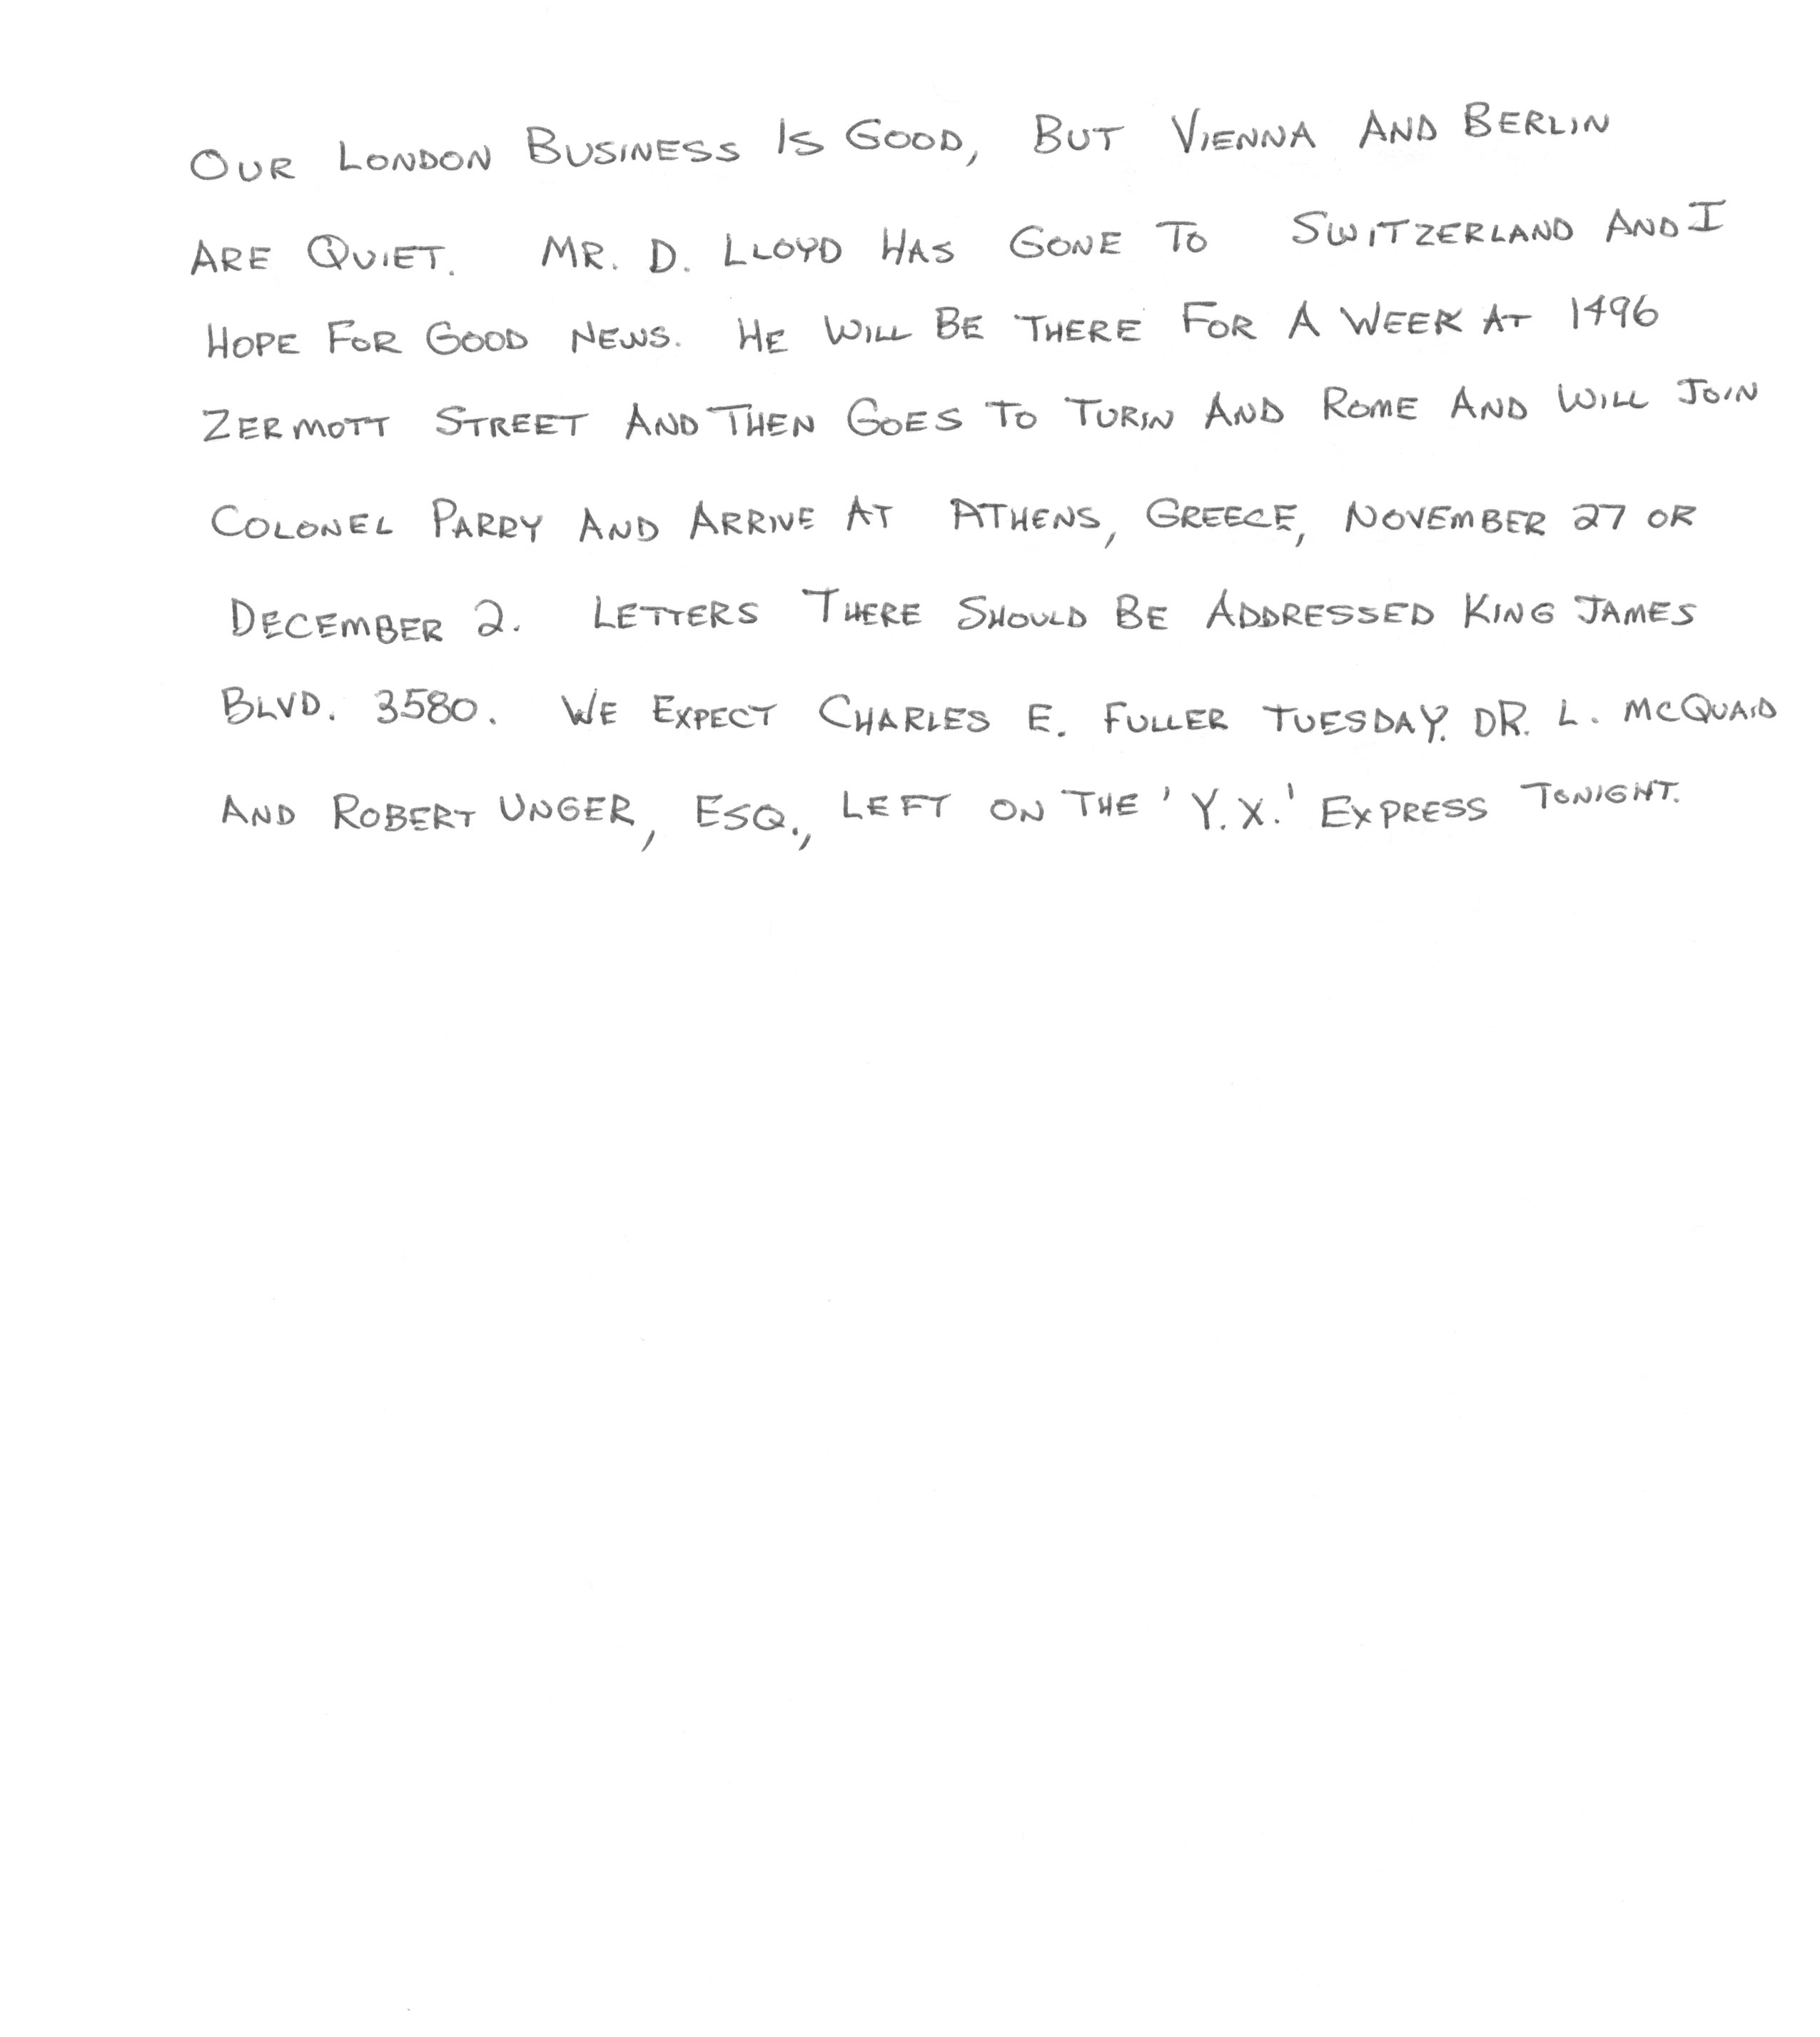 OUR LONDON BUSINESS IS GOOD, BUT VIENNA AND BERLIN
ARE QUIET. MR. D. LLOYD HAS GONE TO SWITZERLAND AND I
HOPE FOR GOOD NEWS. HE WILL BE THERE FOR A WEEK AT 1496
ZERMOTT STREET AND THEN GOES TO TURIN AND ROME AND WILL JOIN
COLONEL PARRY AND ARRIVE AT ATHENS, GREECE, NOVEMBER 27 OR
DECEMBER 2. LETTERS THERE SHOULD BE ADDRESSED KING JAMES
BLVD. 3580. WE EXPECT CHARLES E. FULLER TUESDAY. DR. L. MCQUAID
AND ROBERT UNGER, ESQ., LEFT ON THE 'Y.X.' EXPRESS TONIGHT.